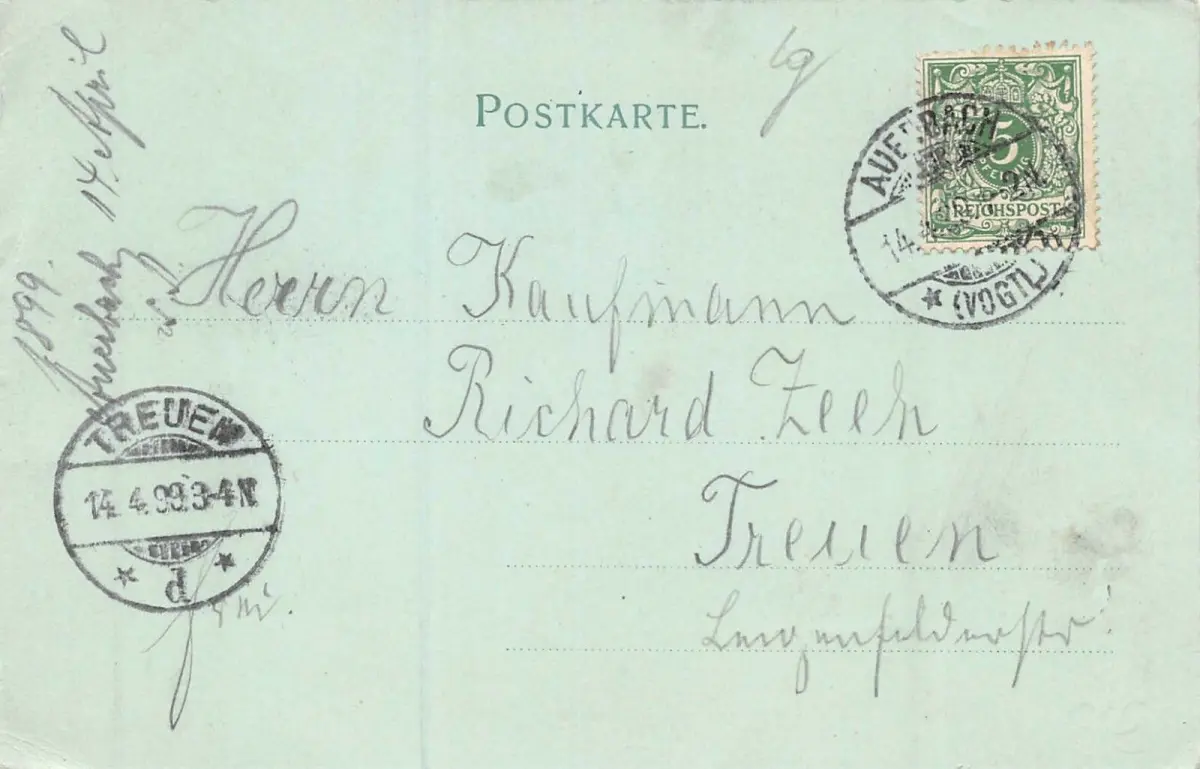 POSTKARTE.
19
5
REICHSPOST
AUERBACH
14. 2N.
(VOGTL)
Auerbach 14. April
1899.
Herrn Kaufmann
Richard Zeeh
Treuen
Lengenfelderstr.
TREUEN
14. 4. 99. 3-4 N
d
frei.